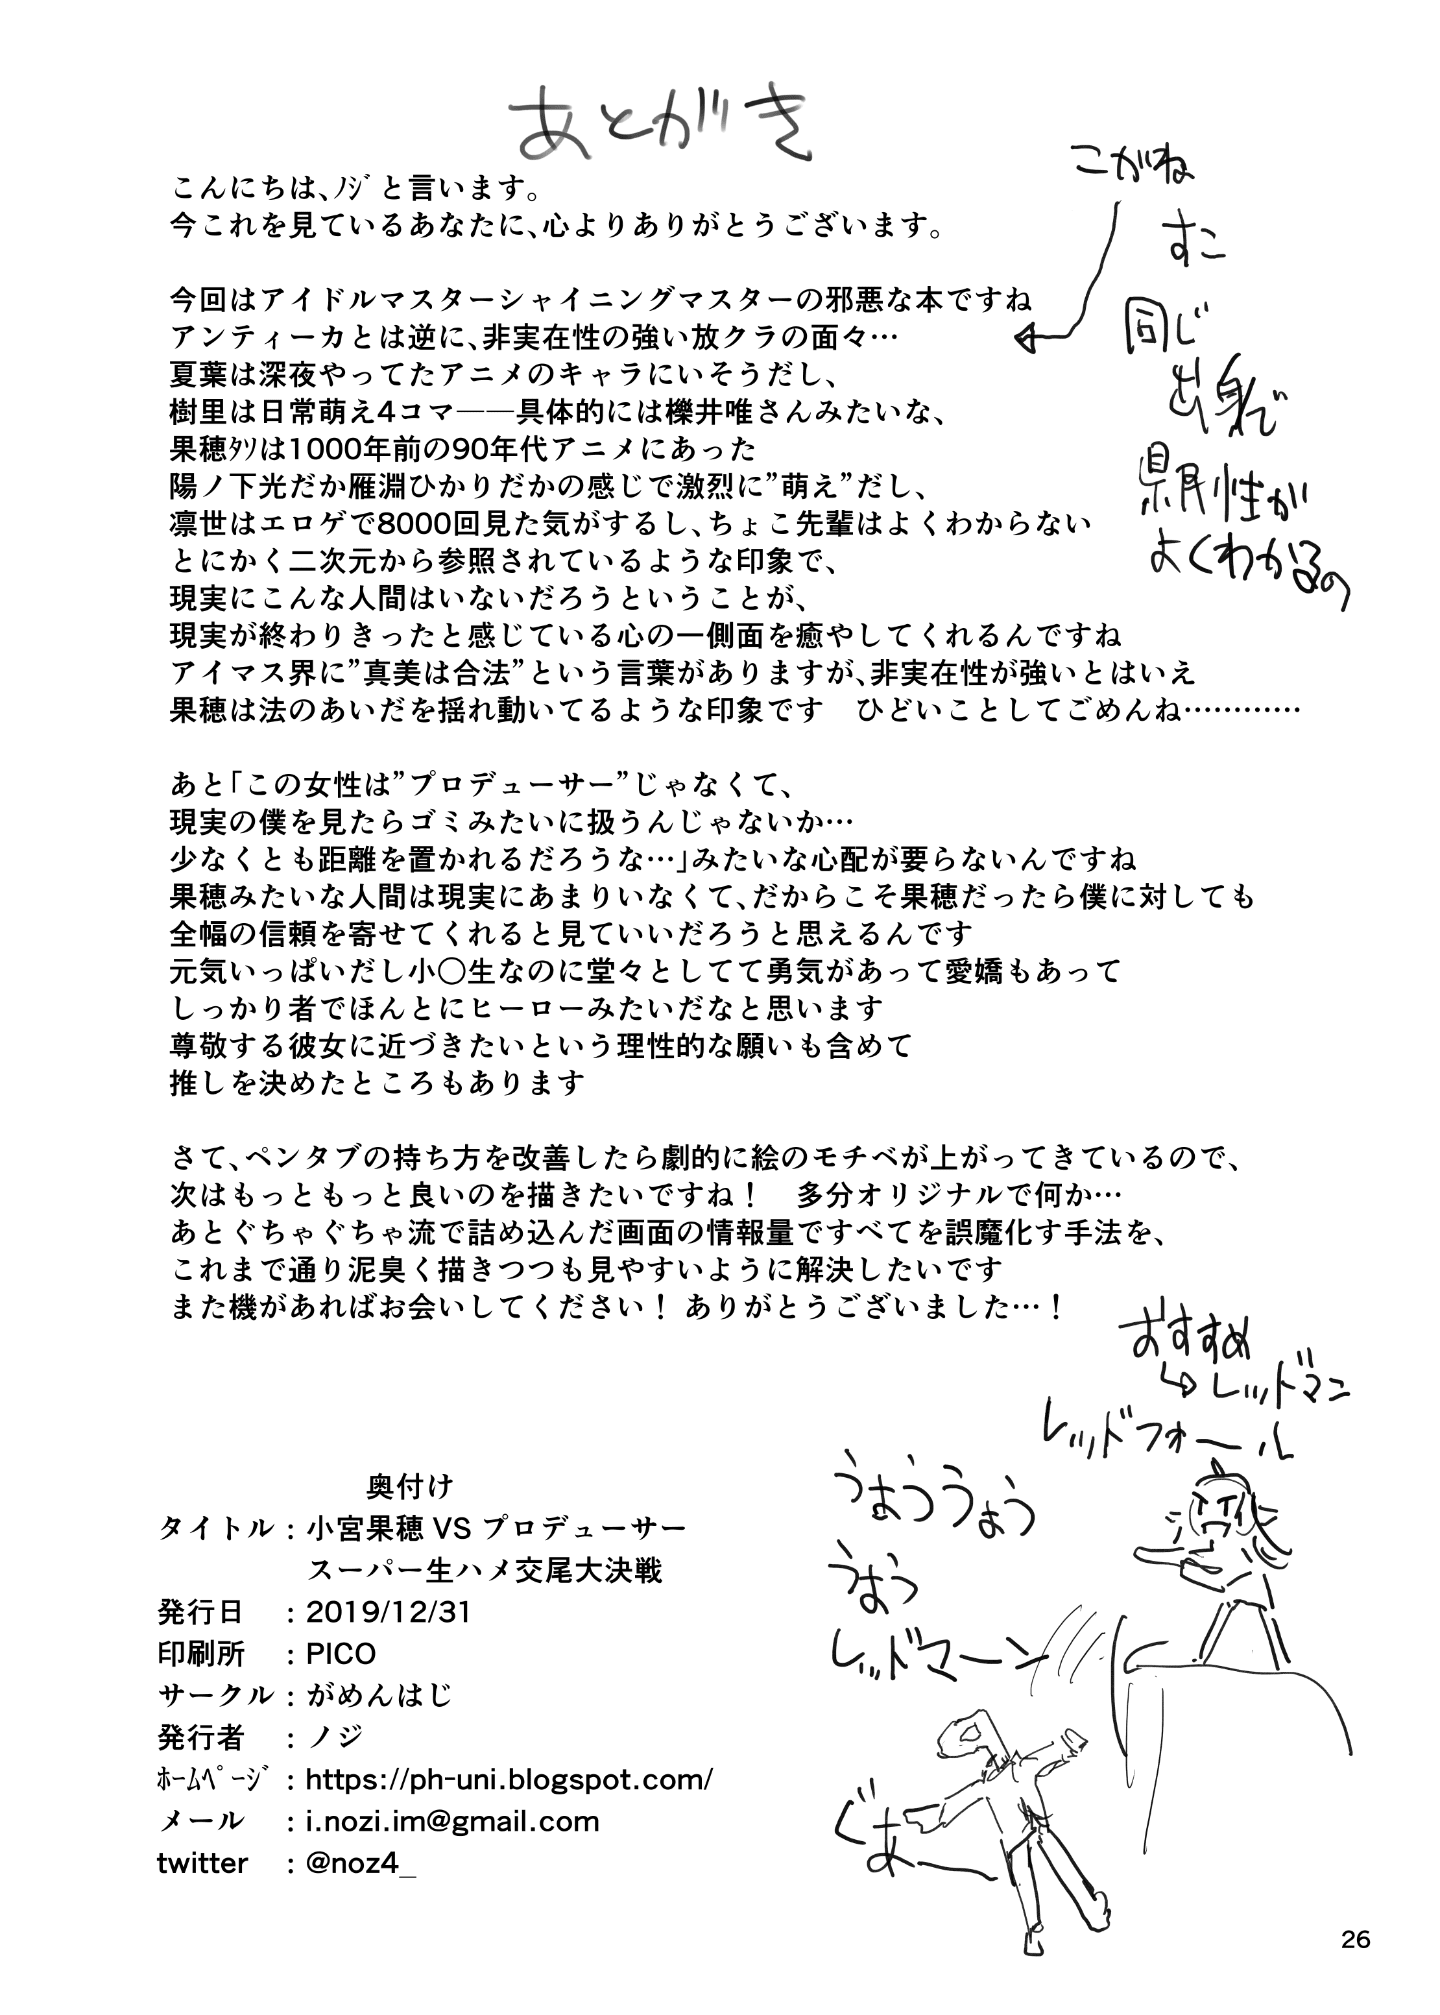 あとがき
こんにちは、ﾉｼﾞと言います。
今これを見ているあなたに、心よりありがとうございます。
今回はアイドルマスターシャイニングマスターの邪悪な本ですね
アンティーカとは逆に、非実在性の強い放クラの面々…
夏葉は深夜やってたアニメのキャラにいそうだし、
樹里は日常萌え4コマ――具体的には櫟井唯さんみたいな、
果穂ﾀｿは1000年前の90年代アニメにあった
陽ノ下光だか雁淵ひかりだかの感じで激烈に”萌え”だし、
凛世はエロゲで8000回見た気がするし、ちょこ先輩はよくわからない
とにかく二次元から参照されているような印象で、
現実にこんな人間はいないだろうということが、
現実が終わりきったと感じている心の一側面を癒やしてくれるんですね
アイマス界に”真美は合法”という言葉がありますが、非実在性が強いとはいえ
果穂は法のあいだを揺れ動いてるような印象です　ひどいことしてごめんね…………
こがね
すこ
同じ
出身で
県民性が
よくわかるの
あと「この女性は”プロデューサー”じゃなくて、
現実の僕を見たらゴミみたいに扱うんじゃないか…
少なくとも距離を置かれるだろうな…」みたいな心配が要らないんですね
果穂みたいな人間は現実にあまりいなくて、だからこそ果穂だったら僕に対しても
全幅の信頼を寄せてくれると見ていいだろうと思えるんです
元気いっぱいだし小〇生なのに堂々としてて勇気があって愛嬌もあって
しっかり者でほんとにヒーローみたいだなと思います
尊敬する彼女に近づきたいという理性的な願いも含めて
推しを決めたところもあります
さて、ペンタブの持ち方を改善したら劇的に絵のモチベが上がってきているので、
次はもっともっと良いのを描きたいですね！　多分オリジナルで何か…
あとぐちゃぐちゃ流で詰め込んだ画面の情報量ですべてを誤魔化す手法を、
これまで通り泥臭く描きつつも見やすいように解決したいです
また機があればお会いしてください！ ありがとうございました…！
おすすめ
レッドマン
レッドフォール
うおううおう
うおう
レッドマーン
ぐあー
奥付け
タイトル：小宮果穂 VS プロデューサー
スーパー生ハメ交尾大決戦
発行日　：2019/12/31
印刷所　：PICO
サークル：がめんはじ
発行者　：ノジ
ﾎｰﾑﾍﾟｰｼﾞ：https://ph-uni.blogspot.com/
メール　：i.nozi.im@gmail.com
twitter　：@noz4_
26